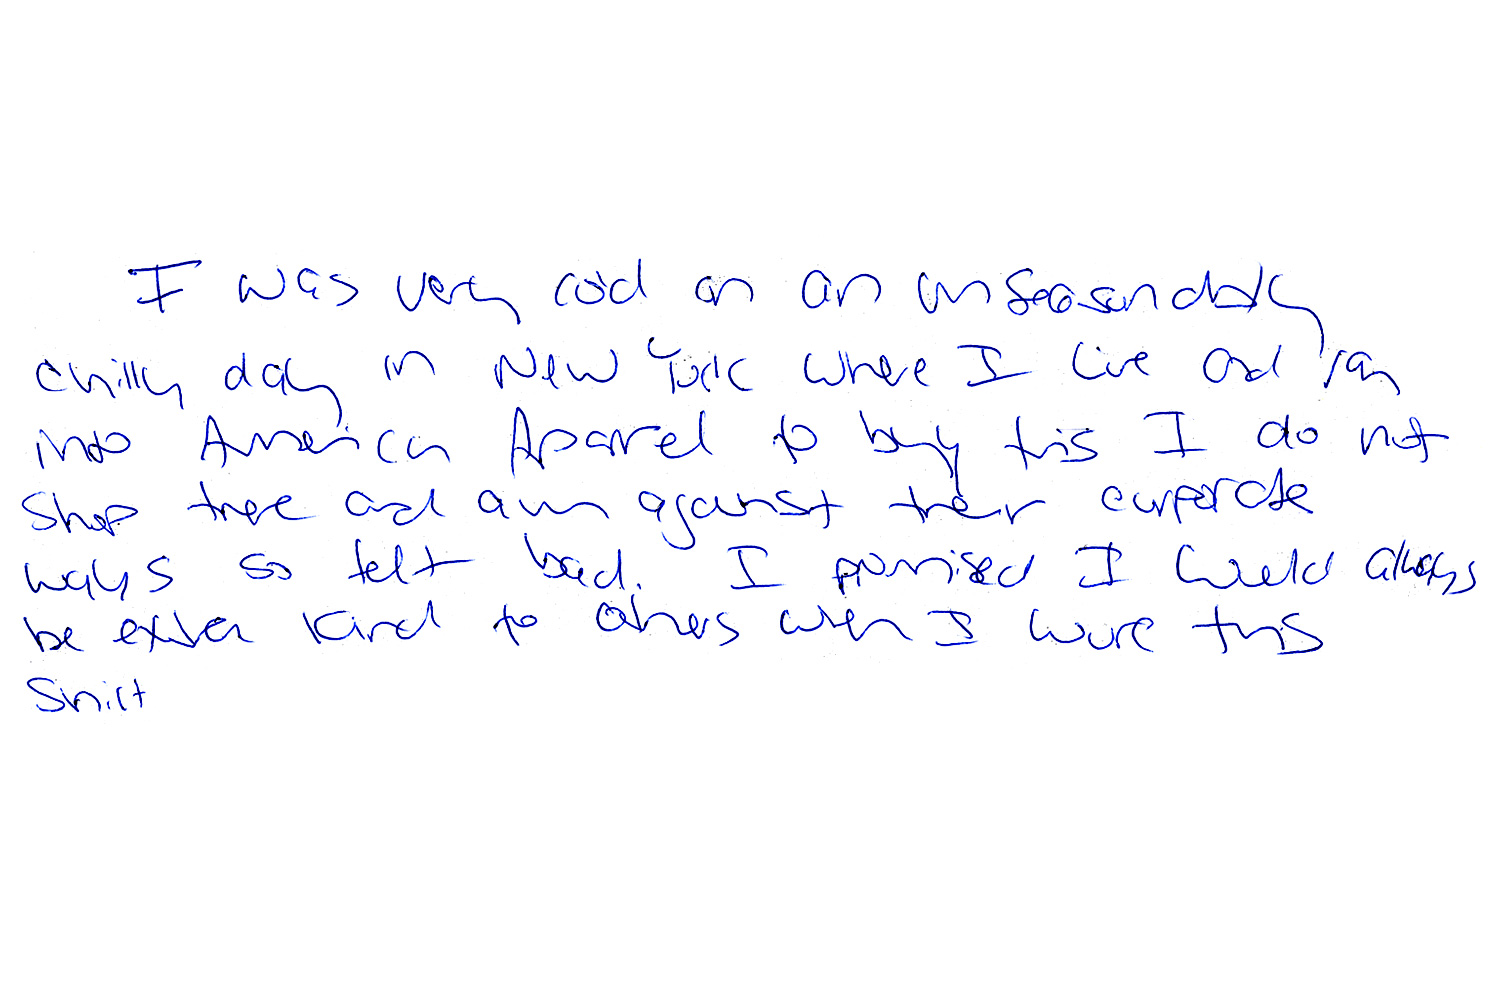 I was very cold on an unseasonably
chilly day in New York where I live and ran
into American Apparel to buy this I do not
shop there and am against their corporate
ways so felt bad. I promised I would always
be extra kind to others when I wore this
shirt